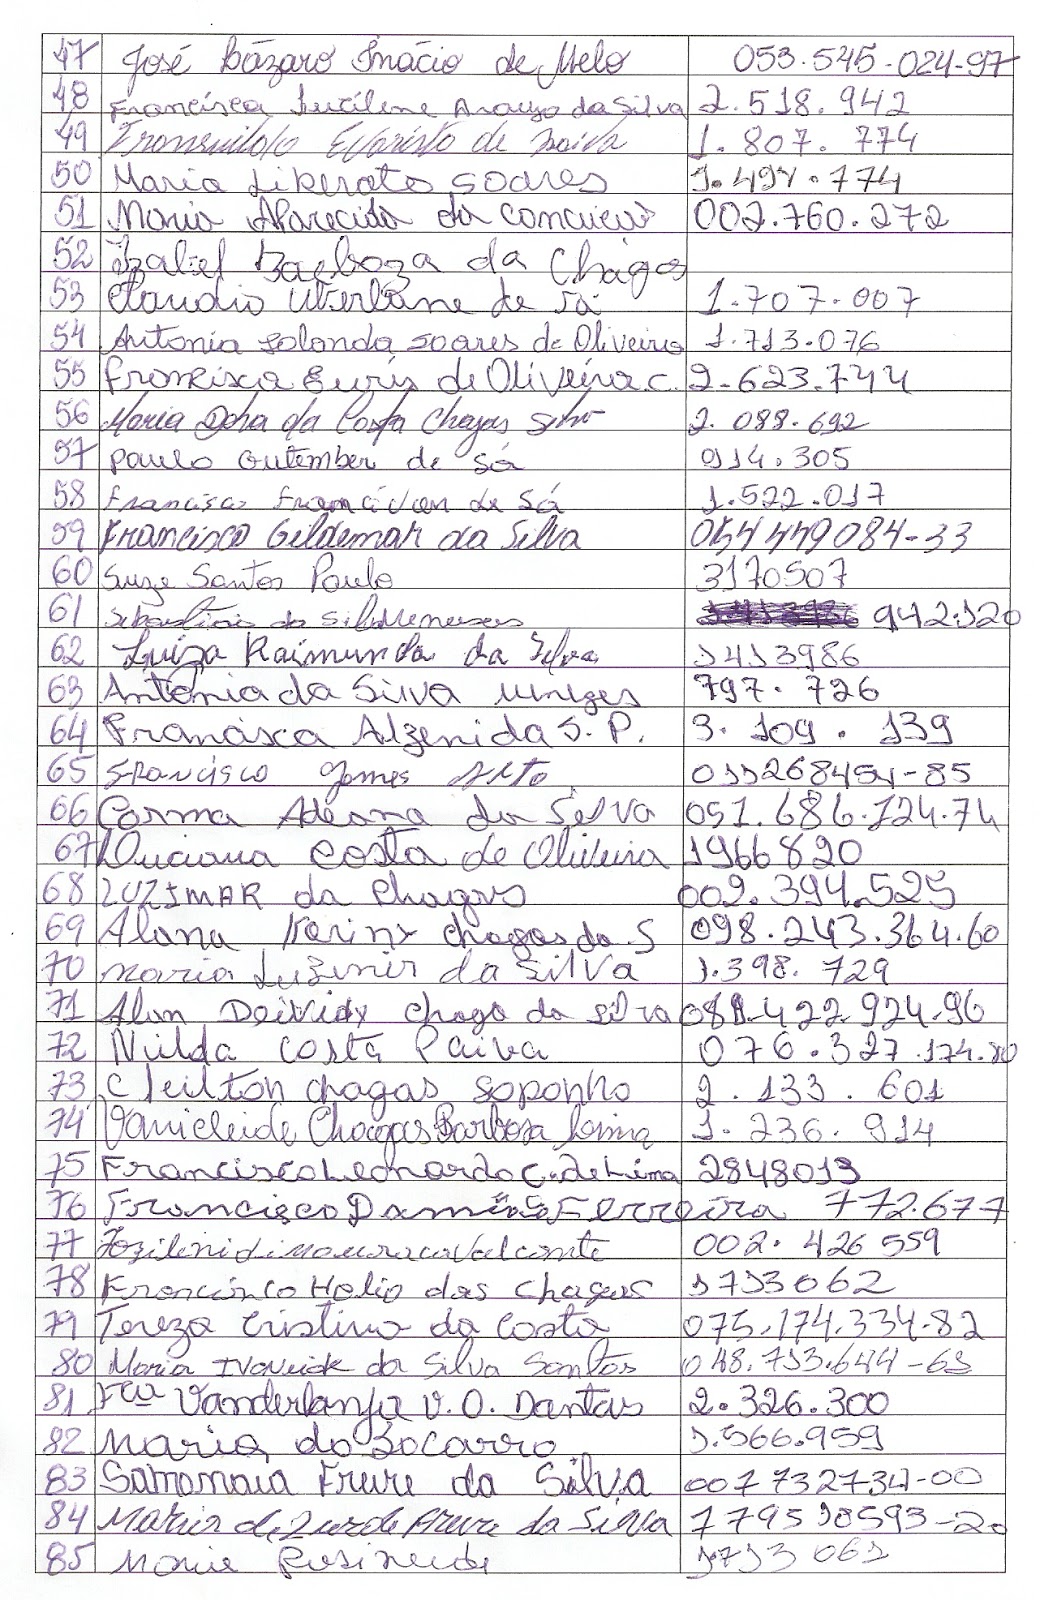 47 José Lázaro Inácio de Melo 053.545.024-97
48 Francisca Lucilene Araujo da Silva 2.518.942
49 Evaristo de Paiva 1.807.774
50 Maria Liberato Soares 1.497.774
51 Maria Aparecida da 002.760.272
52 Izabel Barboza da Chagas
53 Claudio Uberlane de Sá 1.707.007
54 Antonia Iolanda Soares de Oliveira 1.713.076
55 Francisca Euris de Oliveira C. 2.623.744
56 Maria da Costa Chagas 2.088.692
57 Paulo Gutember de Sá 914.305
58 Francisco Francivan de Sá 1.522.017
59 Francisco Gildemar da Silva 054449084-33
60 Suze Santos Paulo 3170507
61 da Silva Meneses 942.120
62 Luiza Raimunda da Silva 1413986
63 Antônia da Silva 797.726
64 Francisca Alzenida S. P. 3.109.139
65 Francisco Gomes Neto 011268454-85
66 Cosma Adeana da Silva 051.686.124.74
67 Luciana Costa de Oliveira 1966820
68 LUZIMAR da Chagas 002.394.525
69 Alana Kariny Chagas da S 098.243.364.60
70 Maria Luzenir da Silva 1.398.729
71 Alan Deividy Chaga da Silva 422.924.96
72 Nilda Costa Paiva 076.327.174.80
73 Cleilton Chagas Soponho 2.133.601
74 Vanicleide Chagas Barbosa Lima 1.236.914
75 Francisco Leonardo C. de Lima 2848013
76 Francisco Ferreira 772.677
77 Cavalcante 002.426559
78 Francisco Helio das Chagas 1713062
79 Tereza Cristina da Costa 075.174.334-82
80 Maria Ivaneide da Silva Santos 048.713.644-61
81 Fca Vanderlanja V. O. Dantas 2.326.300
82 Maria do Socorro 1.566.959
83 Samamaia Freire da Silva 007732734-00
84 Maria de Lurde Freire da Silva 779510593-20
85 Maria Rosineide 1713061